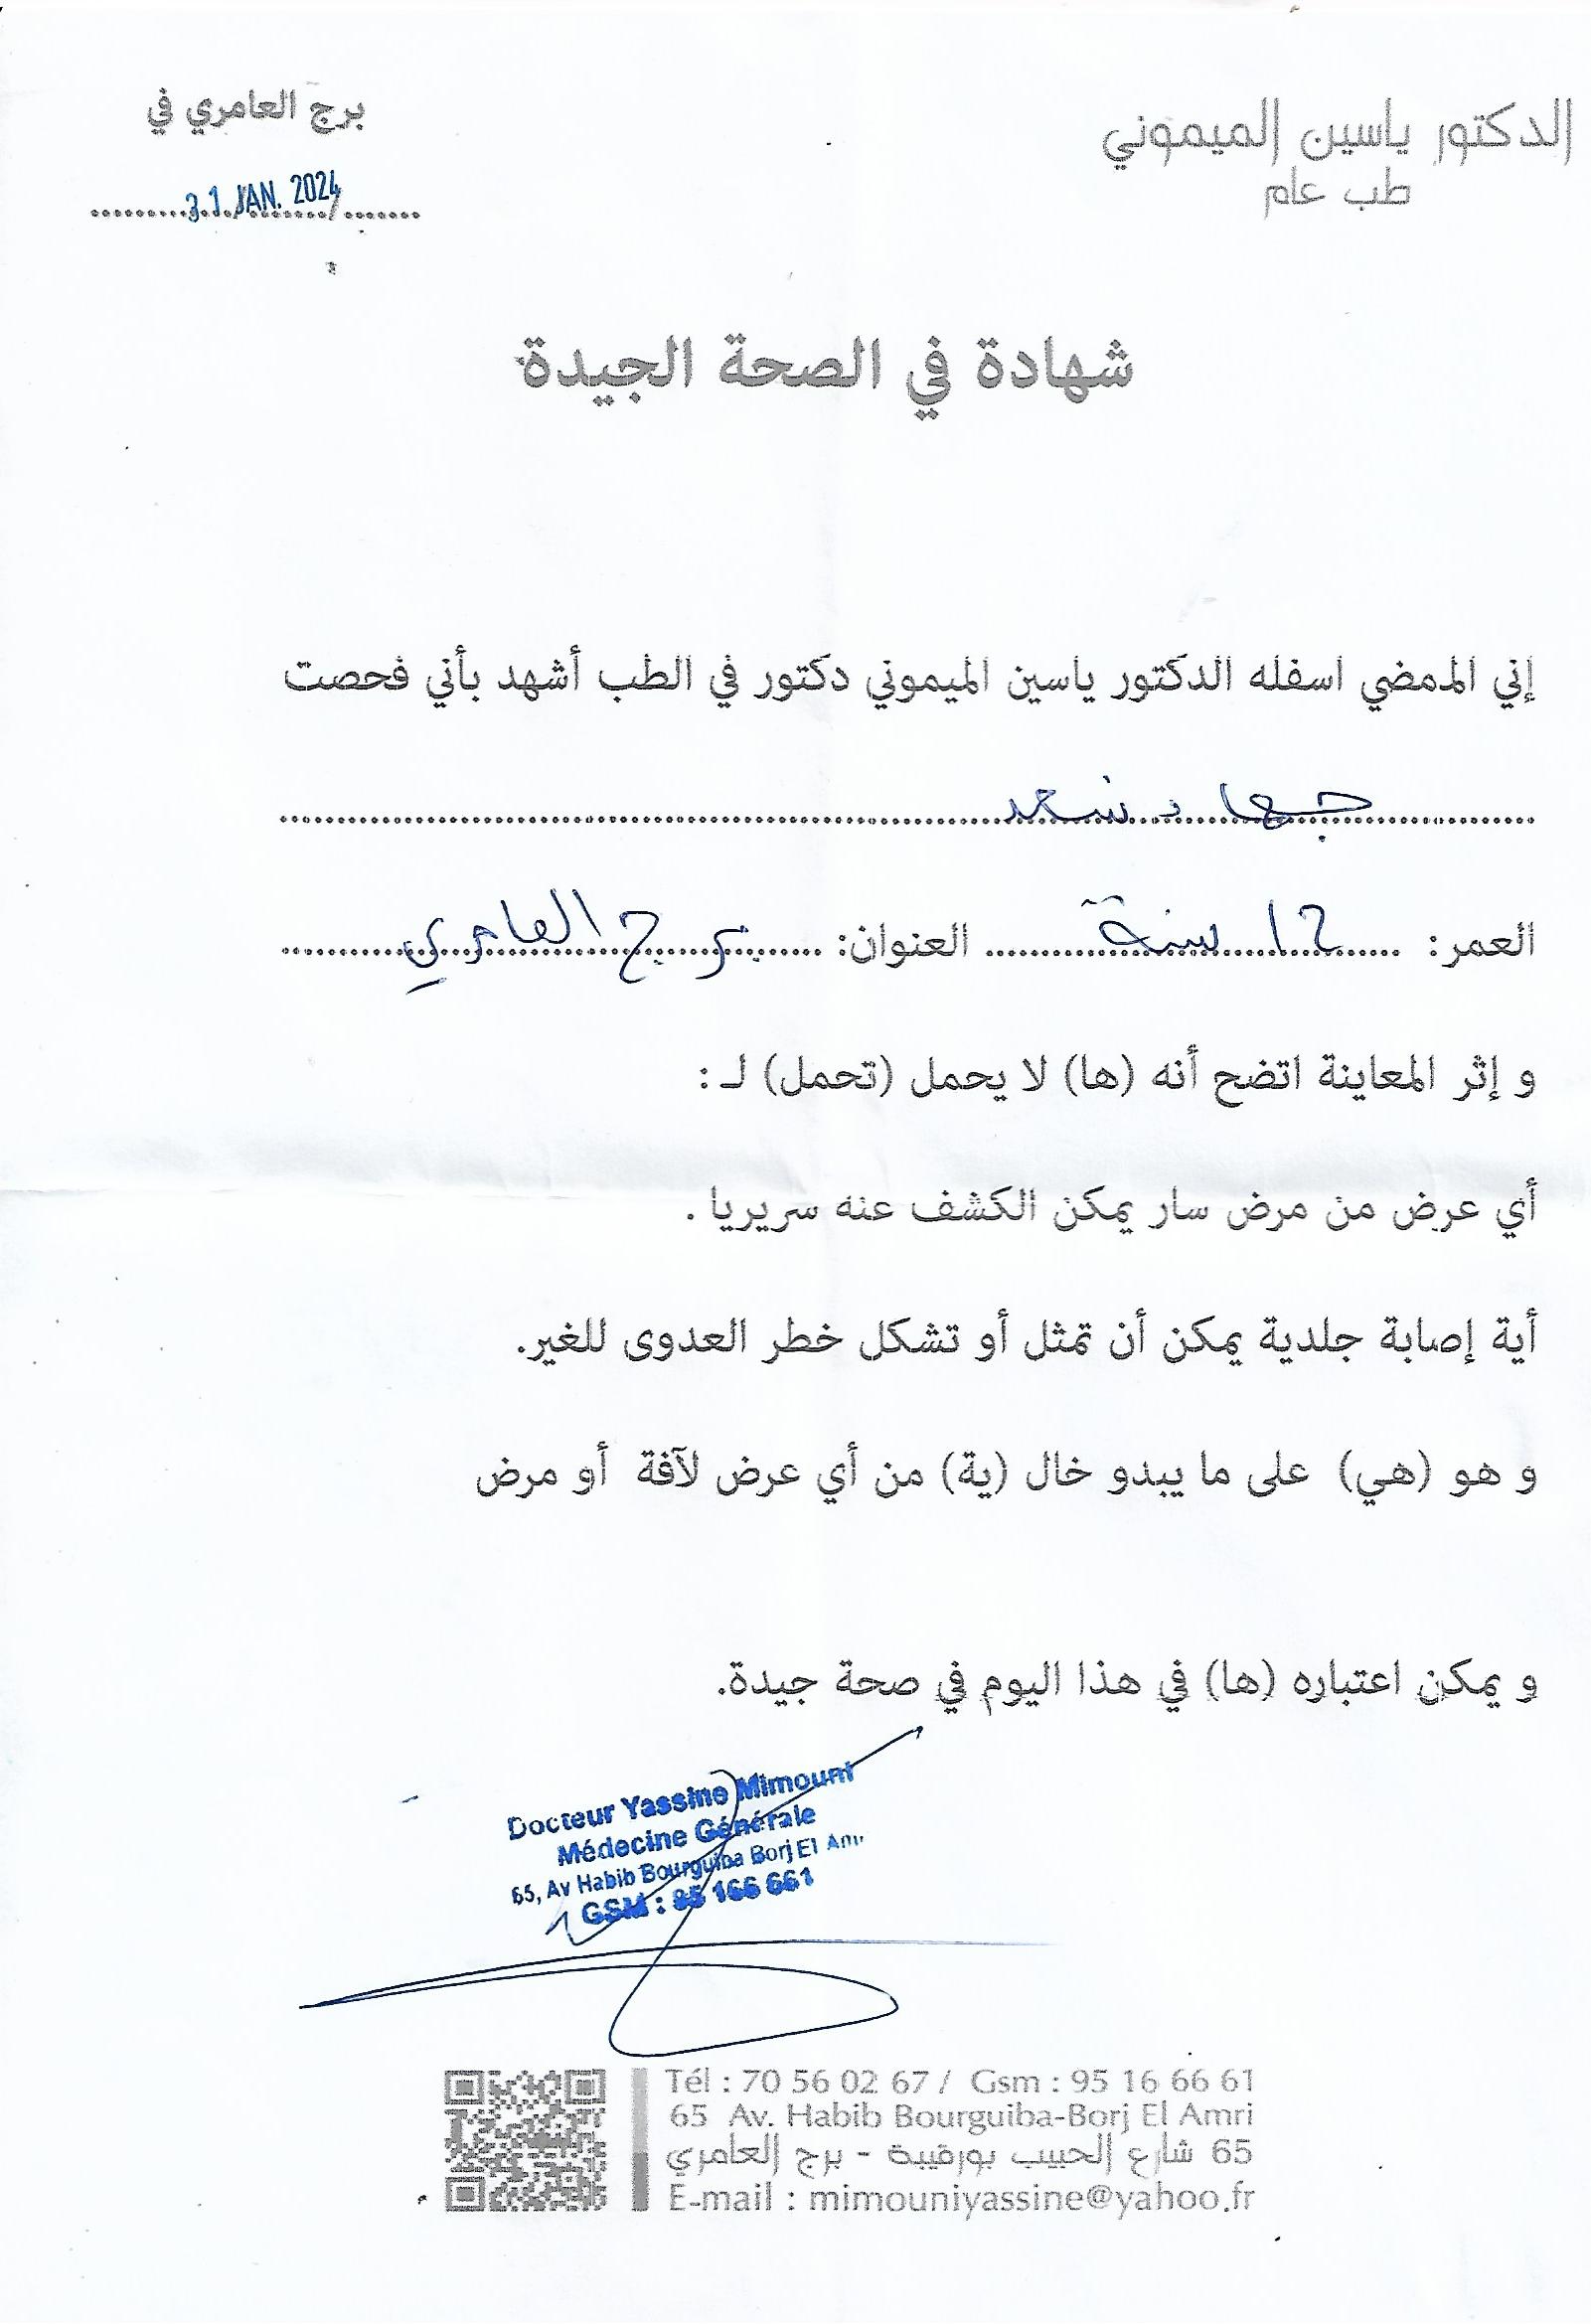 الدكتور ياسين الميموني
طب عام
برج العامري في
31 JAN. 2024
شهادة في الصحة الجيدة
إني الممضي اسفله الدكتور ياسين الميموني دكتور في الطب أشهد بأني فحصت
جهاد سعد
العمر: 12 سنة العنوان: برج العامري
و إثر المعاينة اتضح أنه (ها) لا يحمل (تحمل) لـ :
أي عرض من مرض سار يمكن الكشف عنه سريريا .
أية إصابة جلدية يمكن أن تمثل أو تشكل خطر العدوى للغير.
و هو (هي) على ما يبدو خال (ية) من أي عرض لآفة أو مرض
و يمكن اعتباره (ها) في هذا اليوم في صحة جيدة.
Docteur Yassine Mimouni
Médecine Générale
65, Av Habib Bourguiba Borj El Amri
GSM : 95 166 661
Tél : 70 56 02 67 / Gsm : 95 16 66 61
65 Av. Habib Bourguiba-Borj El Amri
65 شارع الحبيب بورقيبة - برج العامري
E-mail : mimouniyassine@yahoo.fr